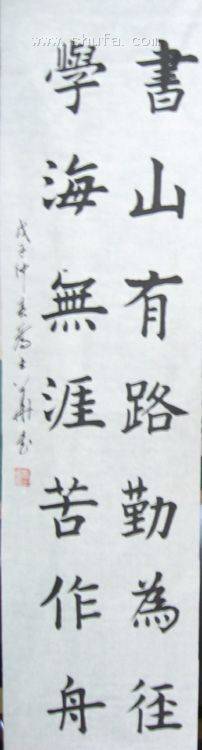 書山有路勤為径
學海無涯苦作舟
戊子仲春
www.shufa.com